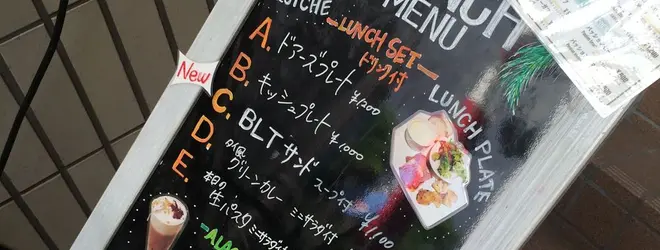 LUNCH
MENU
LUNCH SET
ドリンク付
New
A. ドアーズプレート ¥1,200
B. キッシュプレート ¥1,000
C. BLTサンド スープ付 ¥1,100
D. グリーンカレー ミニサラダ付
E. 本日の生パスタ ミニサラダ付
LUNCH PLATE